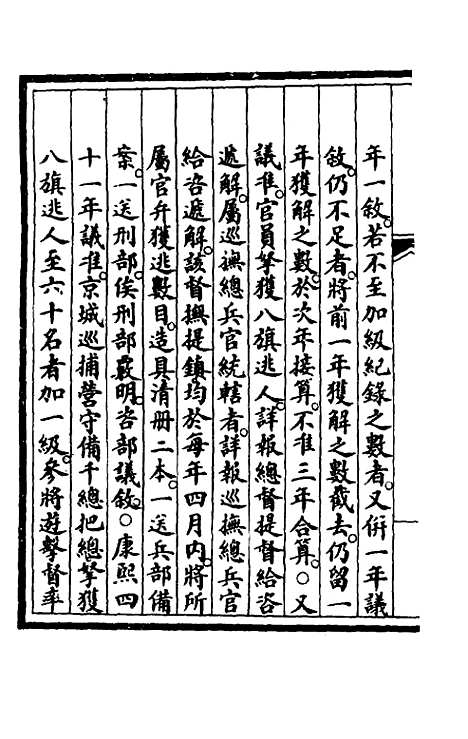 年一敘。若不至加級紀錄之數者。又併一年議
敘。仍不足者。將前一年獲解之數截去。仍留一
年獲解之數。於次年接算。不准三年合算。○又
議准。官員拏獲八旗逃人。詳報總督提督給咨
遞解。屬巡撫總兵官統轄者。詳報巡撫總兵官
給咨遞解。該督撫提鎮均於每年四月內。將所
屬官弁獲逃數目。造具清册二本。一送兵部備
案。一送刑部。俟刑部覈明。咨部議敘。○康熙四
十一年議准。京城巡捕營守備千總把總拏獲
八旗逃人至六十名者加一級。參將遊擊督率